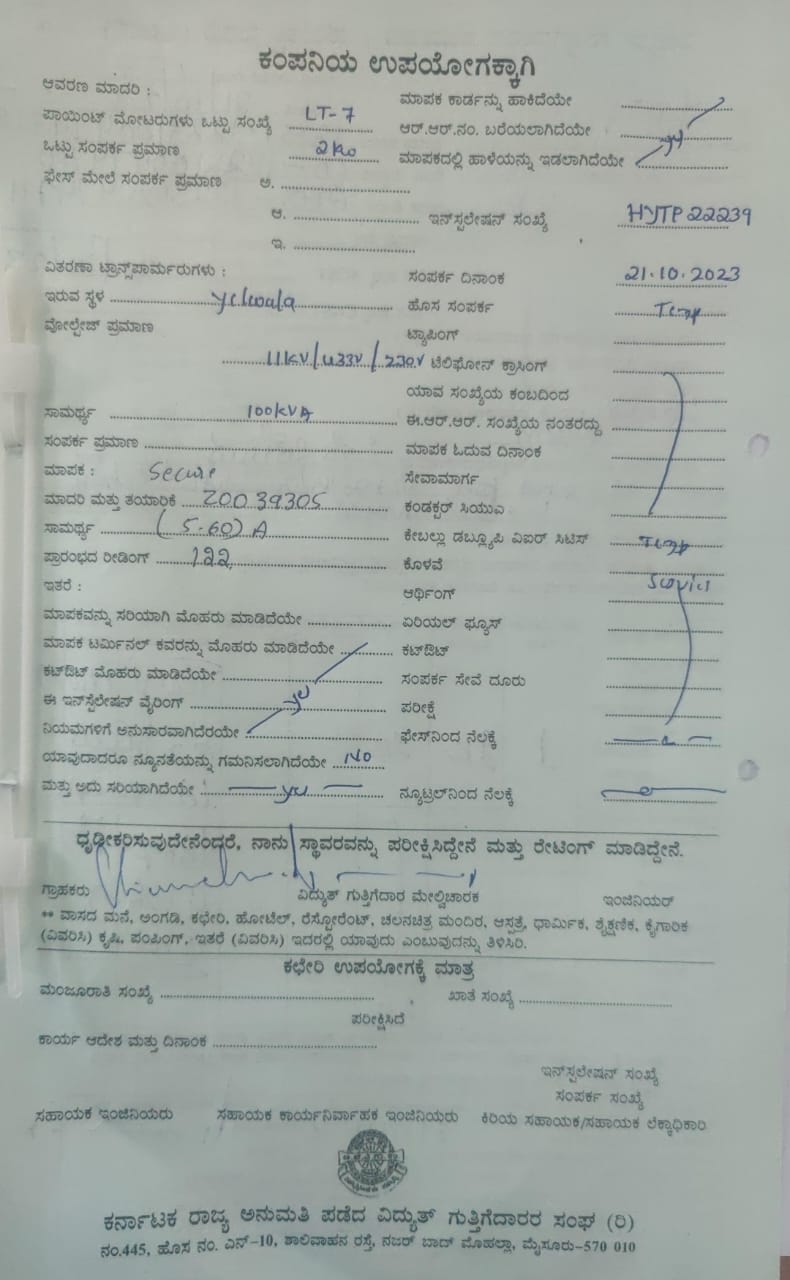 ಕಂಪನಿಯ ಉಪಯೋಗಕ್ಕಾಗಿ
ಆವರಣ ಮಾದರಿ :
ಮಾಪಕ ಕಾರ್ಡನ್ನು ಹಾಕಿದೆಯೇ
ಪಾಯಿಂಟ್ ಮೋಟರುಗಳು ಒಟ್ಟು ಸಂಖ್ಯೆ LT-7
ಆರ್.ಆರ್.ನಂ. ಬರೆಯಲಾಗಿದೆಯೇ
ಒಟ್ಟು ಸಂಪರ್ಕ ಪ್ರಮಾಣ
ಮಾಪಕದಲ್ಲಿ ಹಾಳೆಯನ್ನು ಇಡಲಾಗಿದೆಯೇ
ಫೇಸ್ ಮೇಲೆ ಸಂಪರ್ಕ ಪ್ರಮಾಣ ಅ.
ಆ. ಇನ್‌ಸ್ಟಲೇಷನ್ ಸಂಖ್ಯೆ HYTP 22239
ಇ.
ವಿತರಣಾ ಟ್ರಾನ್ಸ್‌ಪಾರ್ಮರುಗಳು :
ಸಂಪರ್ಕ ದಿನಾಂಕ 21.10.2023
ಇರುವ ಸ್ಥಳ Yelwala
ಹೊಸ ಸಂಪರ್ಕ Temp
ವೋಲ್ಟೇಜ್ ಪ್ರಮಾಣ
ಟ್ಯಾಪಿಂಗ್
11KV/433V/230V ಟೆಲಿಫೋನ್ ಕ್ರಾಸಿಂಗ್
ಯಾವ ಸಂಖ್ಯೆಯ ಕಂಬದಿಂದ
ಸಾಮರ್ಥ್ಯ 100KVA
ಈ.ಆರ್.ಆರ್. ಸಂಖ್ಯೆಯ ನಂತರದ್ದು
ಸಂಪರ್ಕ ಪ್ರಮಾಣ
ಮಾಪಕ ಓದುವ ದಿನಾಂಕ
ಮಾಪಕ : Secure
ಸೇವಾಮಾರ್ಗ
ಮಾದರಿ ಮತ್ತು ತಯಾರಿಕೆ 20039305
ಕಂಡಕ್ಟರ್ ಸಿಯುಎ
ಸಾಮರ್ಥ್ಯ (5-60) A
ಕೇಬಲ್ಲು ಡಬ್ಲ್ಯೂಪಿ ವಿಐರ್ ಸಿಟಿಸ್ Temp
ಪ್ರಾರಂಭದ ರೀಡಿಂಗ್ 122
ಕೊಳವೆ
ಇತರೆ :
ಆರ್ಥಿಂಗ್
ಮಾಪಕವನ್ನು ಸರಿಯಾಗಿ ಮೊಹರು ಮಾಡಿದೆಯೇ
ಏರಿಯಲ್ ಫ್ಯೂಸ್
ಮಾಪಕ ಟರ್ಮಿನಲ್ ಕವರನ್ನು ಮೊಹರು ಮಾಡಿದೆಯೇ
ಕಟ್‌ಔಟ್
ಕಟ್‌ಔಟ್ ಮೊಹರು ಮಾಡಿದೆಯೇ
ಸಂಪರ್ಕ ಸೇವೆ ದೂರು
ಈ ಇನ್‌ಸ್ಟೆಲೇಷನ್ ವೈರಿಂಗ್
ಪರೀಕ್ಷೆ
ನಿಯಮಗಳಿಗೆ ಅನುಸಾರವಾಗಿದೆರಯೇ
ಫೇಸ್‌ನಿಂದ ನೆಲಕ್ಕೆ
ಯಾವುದಾದರೂ ನ್ಯೂನತೆಯನ್ನು ಗಮನಿಸಲಾಗಿದೆಯೇ NO
ಮತ್ತು ಅದು ಸರಿಯಾಗಿದೆಯೇ
ನ್ಯೂಟ್ರಲ್‌ನಿಂದ ನೆಲಕ್ಕೆ
ಧೃಢೀಕರಿಸುವುದೇನೆಂದರೆ, ನಾನು ಸ್ಥಾವರವನ್ನು ಪರೀಕ್ಷಿಸಿದ್ದೇನೆ ಮತ್ತು ರೇಟಿಂಗ್ ಮಾಡಿದ್ದೇನೆ.
ಗ್ರಾಹಕರು ವಿದ್ಯುತ್ ಗುತ್ತಿಗೆದಾರ ಮೇಲ್ವಿಚಾರಕ ಇಂಜಿನಿಯರ್
** ವಾಸದ ಮನೆ, ಅಂಗಡಿ, ಕಛೇರಿ, ಹೋಟೆಲ್, ರೆಸ್ಟೋರೆಂಟ್, ಚಲನಚಿತ್ರ ಮಂದಿರ, ಆಸ್ಪತ್ರೆ, ಧಾರ್ಮಿಕ, ಶೈಕ್ಷಣಿಕ, ಕೈಗಾರಿಕ
(ವಿವರಿಸಿ) ಕೃಷಿ, ಪಂಪಿಂಗ್, ಇತರೆ (ವಿವರಿಸಿ) ಇದರಲ್ಲಿ ಯಾವುದು ಎಂಬುವುದನ್ನು ತಿಳಿಸಿರಿ.
ಕಛೇರಿ ಉಪಯೋಗಕ್ಕೆ ಮಾತ್ರ
ಮಂಜೂರಾತಿ ಸಂಖ್ಯೆ ಖಾತೆ ಸಂಖ್ಯೆ
ಪರೀಕ್ಷಿಸಿದೆ
ಕಾರ್ಯ ಆದೇಶ ಮತ್ತು ದಿನಾಂಕ
ಇನ್‌ಸ್ಟಲೇಷನ್ ಸಂಖ್ಯೆ
ಸಂಪರ್ಕ ಸಂಖ್ಯೆ
ಸಹಾಯಕ ಇಂಜಿನಿಯರು ಸಹಾಯಕ ಕಾರ್ಯನಿರ್ವಾಹಕ ಇಂಜಿನಿಯರು ಕಿರಿಯ ಸಹಾಯಕ/ಸಹಾಯಕ ಲೆಕ್ಕಾಧಿಕಾರಿ
ಕರ್ನಾಟಕ ರಾಜ್ಯ ಅನುಮತಿ ಪಡೆದ ವಿದ್ಯುತ್ ಗುತ್ತಿಗೆದಾರರ ಸಂಘ (ರಿ)
ನಂ.445, ಹೊಸ ನಂ. ಎನ್-10, ಶಾಲಿವಾಹನ ರಸ್ತೆ, ನಜರ್ ಬಾದ್ ಮೊಹಲ್ಲಾ, ಮೈಸೂರು-570 010